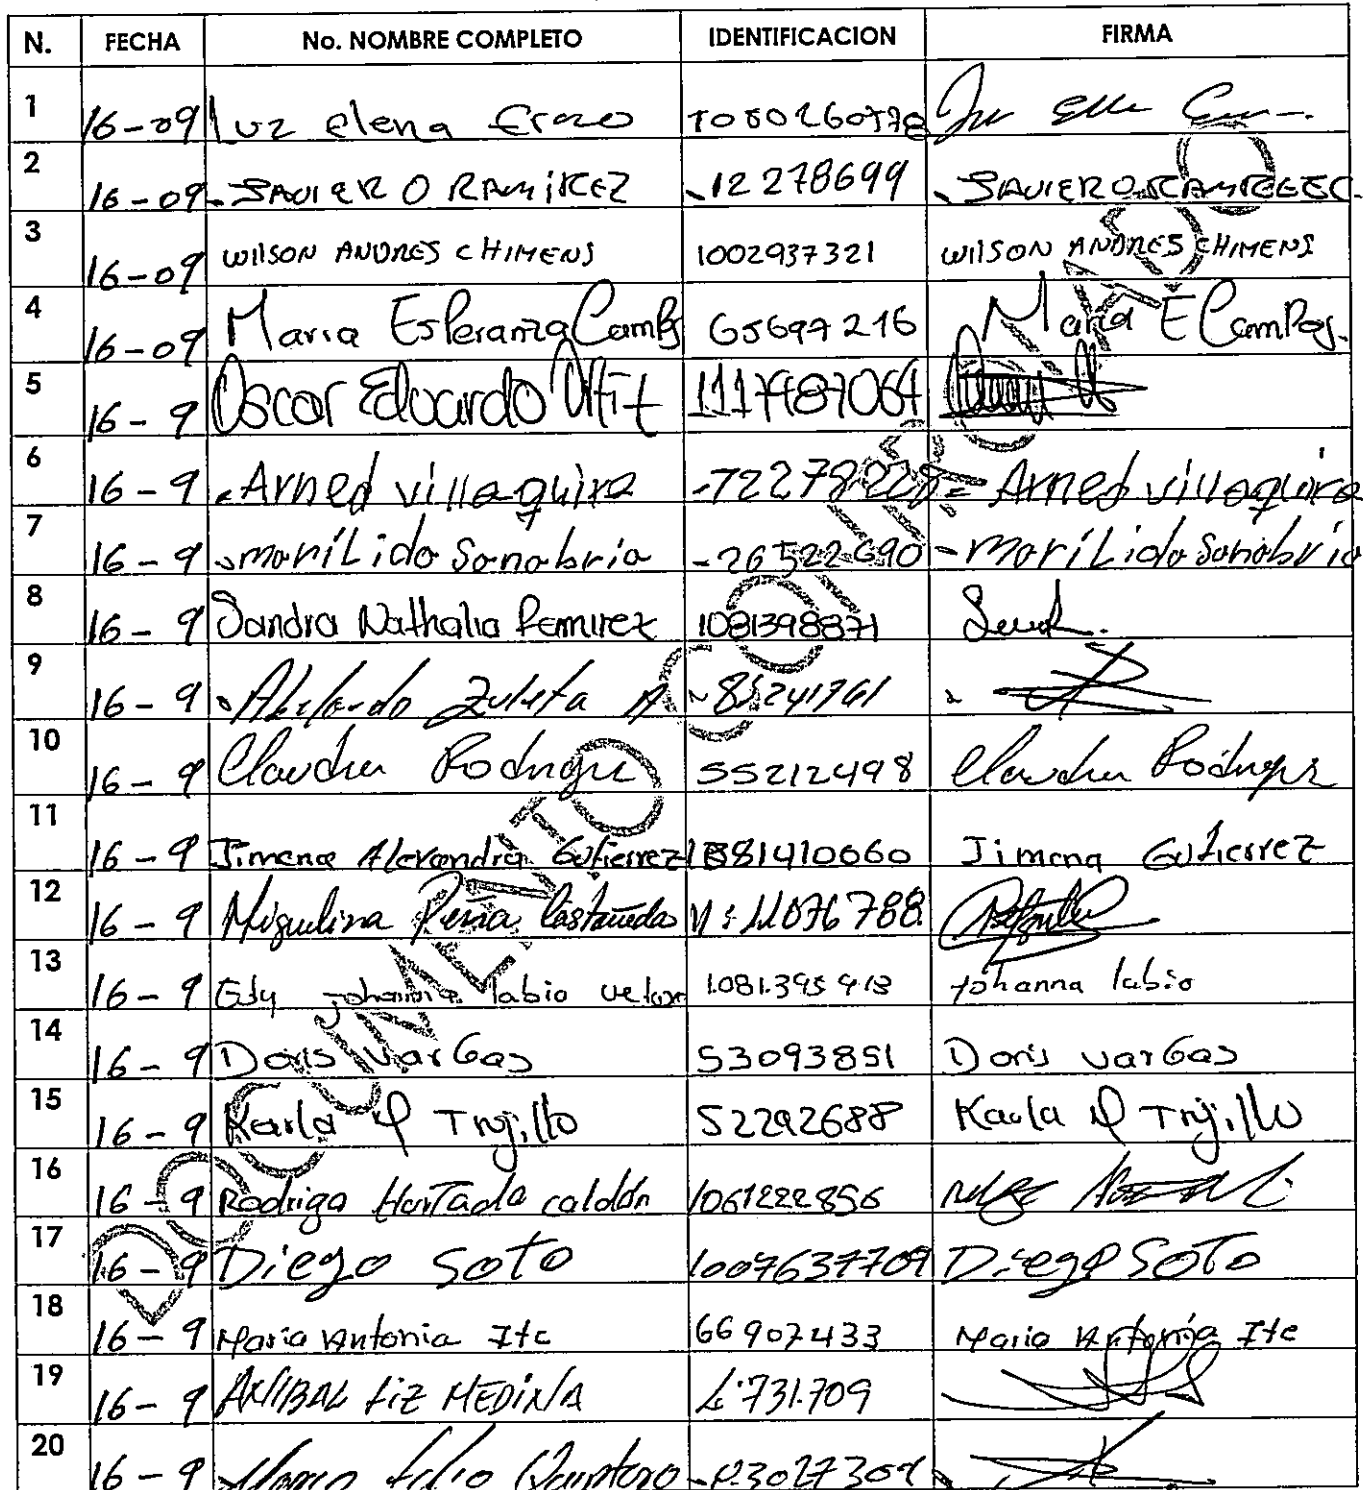 N. FECHA No. NOMBRE COMPLETO IDENTIFICACION FIRMA
1 16-09 Luz elena Erazo
2 16-09 JAVIER O RAMIREZ 12278699 JAVIER O
3 16-09 WILSON ANDRES CHIMENS 1002937321 WILSON ANDRES CHIMENS
4 16-09 Maria Esperanza Campos 65697216 Maria E Campos.
5 16-9 Oscar Eduardo 1117487064
6 16-9 Arned villaquira Arned villaquira
7 16-9 mariLida Sanabria mariLida Sanabria
8 16-9 Sandra Nathalia Ramirez 1081398871
9 16-9 Abelardo Zuleta A
10 16-9 Claudia 55212498 Claudia
11 16-9 Jimena Alexandra Gutierrez 1081410060 Jimena Gutierrez
12 16-9 Miguelina Peña Castañeda
13 16-9 Edy Johanna labio 1.081.395.913 Johanna labio
14 16-9 Doris VarGas 53093851 Doris varGas
15 16-9 Karla Trujillo 52292688 Karla Trujillo
16 16-9 Rodrigo Hurtado caldón 1061222856
17 16-9 Diego Soto 1007637709 Diego SOTO
18 16-9 Maria Antonia 66907433 Maria Antonia
19 16-9 ANIBAL LIZ MEDINA 731.709
20 16-9 Quintero
DOCUMENTO CONTROLADO